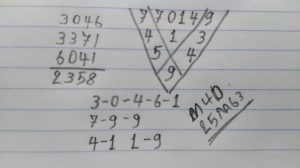 3046
3371
6041
2358
770149
4 1 3
5 4
9
3-0-4-6-1
7-9-9
4-1 1-9
M4D